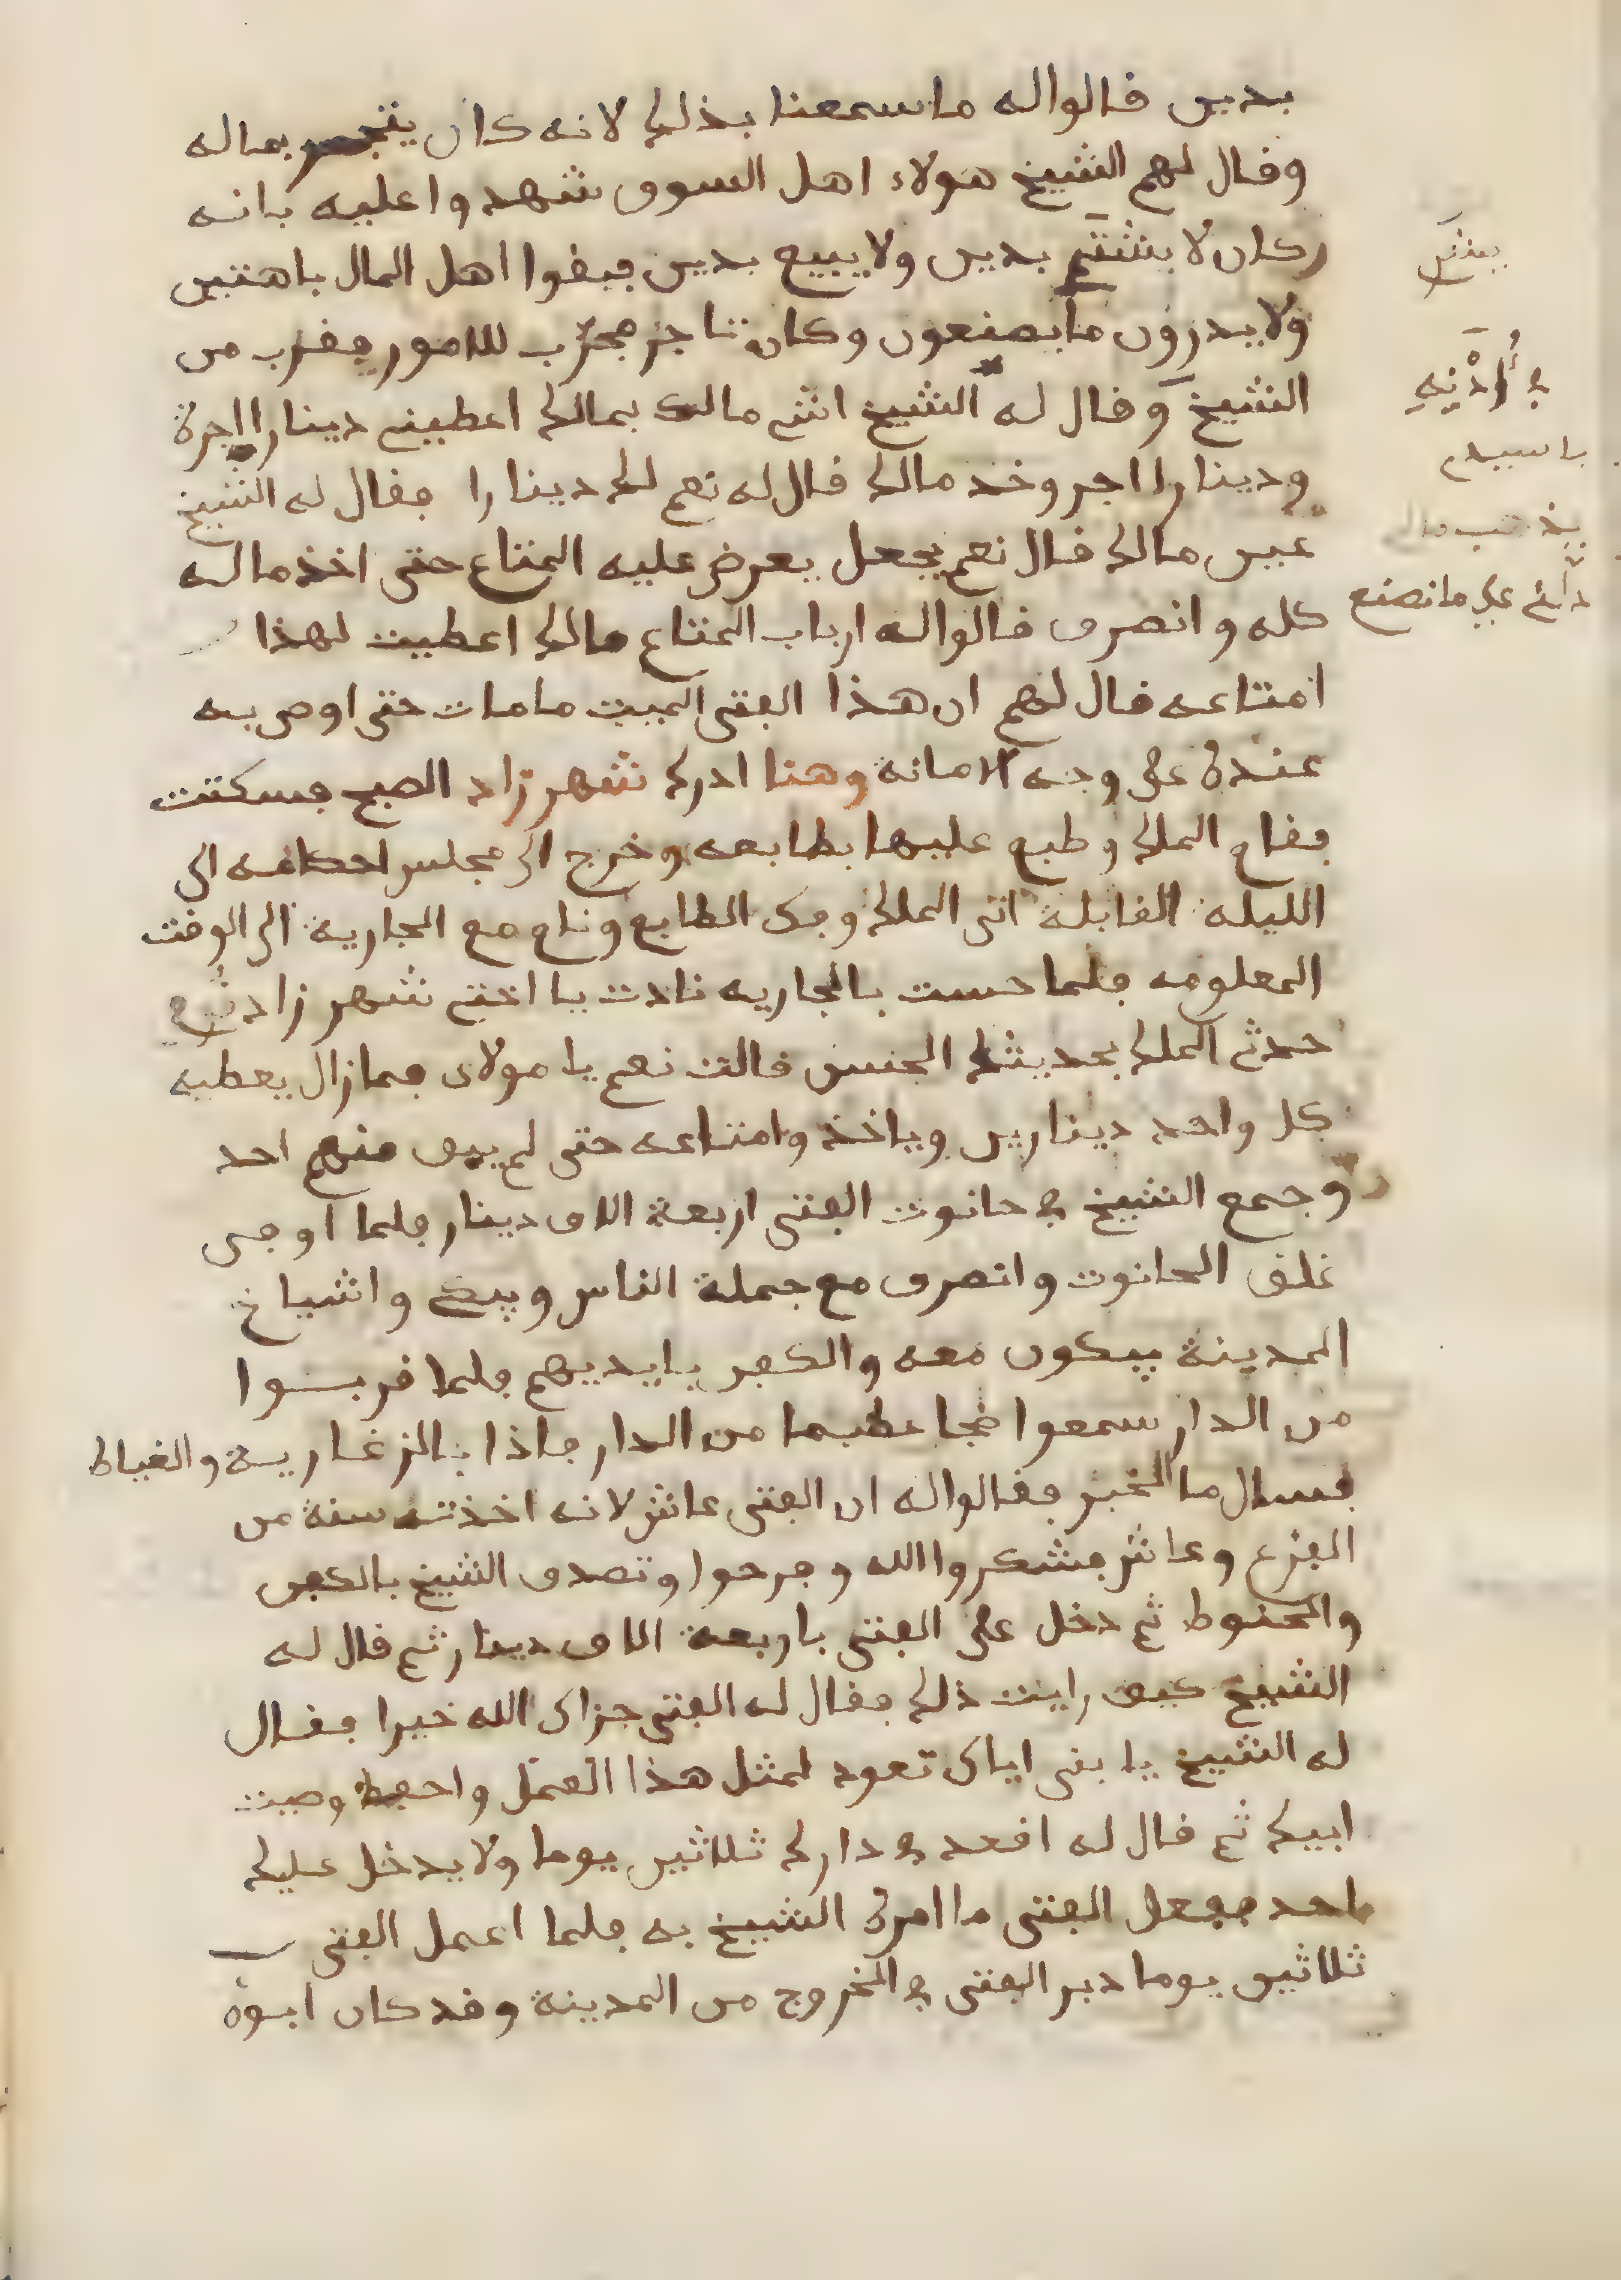 بدين قالوا له ما سمعنا بذلك لانه كان يتجر بماله
وقال لهم الشيخ هولاء اهل السوق شهدوا عليه بانه
كان لا يشتري بدين ولا يبيع بدين فبقوا اهل المال باهتين
ولا يدرون ما يصنعون وكان تاجر مجرّب للامور فقرب من
الشيخ وقال له الشيخ اش مالك بمالك اعطيني دينارا اجرة
ودينارا اجر وخد مالك قال له نعم لك دينارا فقال له الشيخ
عين مالك قال نعم فجعل يعرض عليه المتاع حتى اخذ ماله
كله وانصرف قالوا له ارباب المتاع مالك اعطيت لهذا
امتاعه قال لهم ان هذا الفتى الميت ما مات حتى اوصى به
عنده على وجه الامانة وهنا ادرك شهرزاد الصبح فسكتت
فقام الملك وطبع عليها بطابعه وخرج الى مجلس احكامه الى
الليله القابلة اتى الملك وفك الطابع ونام مع الجارية الى الوقت
المعلومه فلما حست بالجاريه نادت يا اختي شهرزاد
حدثي الملك بحديثك الحسن قالت نعم يا مولاى فما زال يعطيه
كل واحد دينارين وياخذ وامتاعه حتى لم يبق منهم احد
وجمع الشيخ في حانوت الفتى اربعة الاف دينار فلما اوفى
غلق الحانوت وانصرف مع جملة الناس ويبكي واشياخ
المدينة يبكون معه والكفن بايديهم فلما قربوا
من الدار سمعوا ضجا عظيما من الدار فاذا بالزغاريت والغياط
فسال ما الخبر فقالوا له ان الفتى عاش لانه اخذته سنة من
الفزع وعاش فشكروا الله وفرحوا وتصدق الشيخ بالكفن
والحنوط ثم دخل على الفتى باربعة الاف دينار ثم قال له
الشيخ كيف رايت ذلك فقال له الفتى جزاك الله خيرا فقال
له الشيخ يا بني اياك تعود لمثل هذا العمل واحفظ وصيت
ابيك ثم قال له اقعد في دارك ثلاثين يوما ولا يدخل عليك
احد ففعل الفتى ما امره الشيخ به فلما اعمل الفتى
ثلاثين يوما دبر الفتى في الخروج من المدينة وقد كان ابوه
في أُذْنِهِ
يا سيدي
يذهب مالي
دلني على ما نصنع